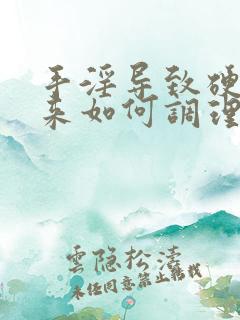 手淫导致硬
来如何調理
雲隐於濤
未经同意禁止转载